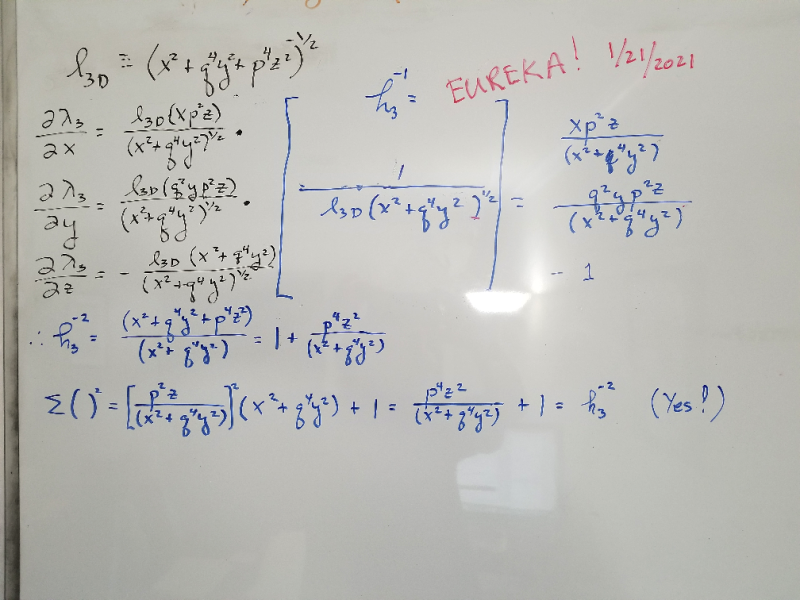 l₃D ≡ (x² + q⁴y² + p⁴z²)^-1/2
EUREKA! 1/21/2021
∂λ₃/∂x = l₃D(xp²z)/(x² + q⁴y²)^1/2 •
h₃^-1 =
xp²z/(x² + q⁴y²)
∂λ₃/∂y = l₃D(q²yp²z)/(x² + q⁴y²)^1/2 •
[ = 1/(l₃D(x² + q⁴y²)^1/2) ] =
q²yp²z/(x² + q⁴y²)
∂λ₃/∂z = - l₃D(x² + q⁴y²)/(x² + q⁴y²)^1/2
- 1
∴ h₃^-2 = (x² + q⁴y² + p⁴z²)/(x² + q⁴y²) = 1 + p⁴z²/(x² + q⁴y²)
Σ( )² = [p²z/(x² + q⁴y²)]² (x² + q⁴y²) + 1 = p⁴z²/(x² + q⁴y²) + 1 = h₃^-2 (Yes!)